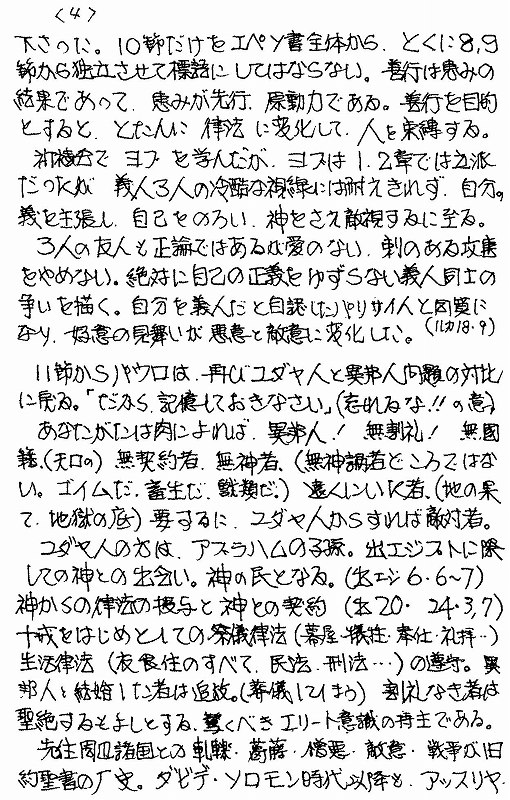 <4>
下さった。10節だけをエペソ書全体から、とくに8,9
節から独立させて標語にしてはならない。善行は恵みの
結果であって、恵みが先行、原動力である。善行を目的
とすると、とたんに律法に変化して、人を束縛する。
祈祷会でヨブを学んだが、ヨブは1.2章では立派
だったが義人3人の冷酷な視線には耐えきれず、自分の
義を主張し、自己をのろい、神をさえ敵視するに至る。
3人の友人も正論ではあるが愛のない、刺のある攻撃
をやめない。絶対に自己の正義をゆずらない義人同士の
争いを描く。自分を義人だと自認したパリサイ人と同質に
なり、好意の見舞いが悪意と敵意に変化した。(ルカ18・9)
11節からパウロは、再びユダヤ人と異邦人問題の対比
に戻る。「だから、記憶しておきなさい」(忘れるな!!の意)
あなたがたは肉によれば、異邦人!無割礼!無国
籍、(天国の)無契約者、無神者、(無神論者どころではな
い。ゴイムだ、畜生だ、獣類だ。)遠くにいた者、(地の果
て、地獄の底)要するに、ユダヤ人からすれば敵対者。
ユダヤ人の方は、アブラハムの子孫。出エジプトに際
しての神との出会い。神の民となる。(出エジ6・6~7)
神からの律法の授与と神との契約(出20・24・3,7)
十戒をはじめとしての祭儀律法(幕屋・犠牲・奉仕・礼拝…)
生活律法(衣食住のすべて、民法・刑法…)の遵守。異
邦人と結婚した者は追放。(葬儀してしまう)割礼なき者は
聖絶するもよしとする、驚くべきエリート意識の持主である。
先住周辺諸国との軋轢・葛藤・憎悪・敵意・戦争が旧
約聖書の歴史。ダビデ・ソロモン時代以降も、アッスリヤ・